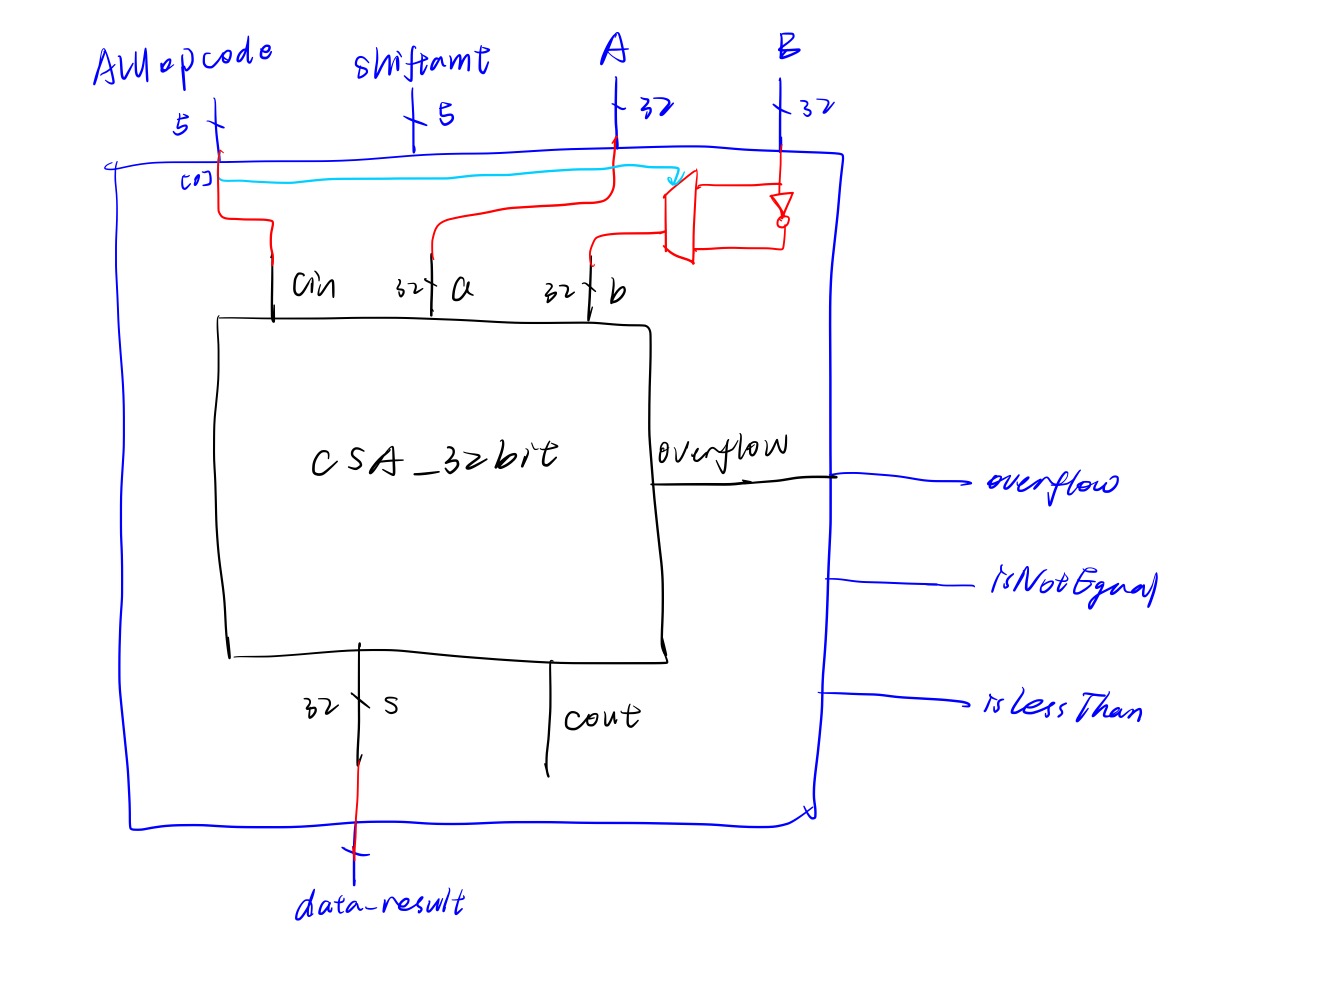 ALUopcode
shiftamt
A
B
5
5
32
32
[0]
cin
32
a
32
b
CSA_32bit
overflow
overflow
isNotEqual
isLessThan
32
s
cout
data_result